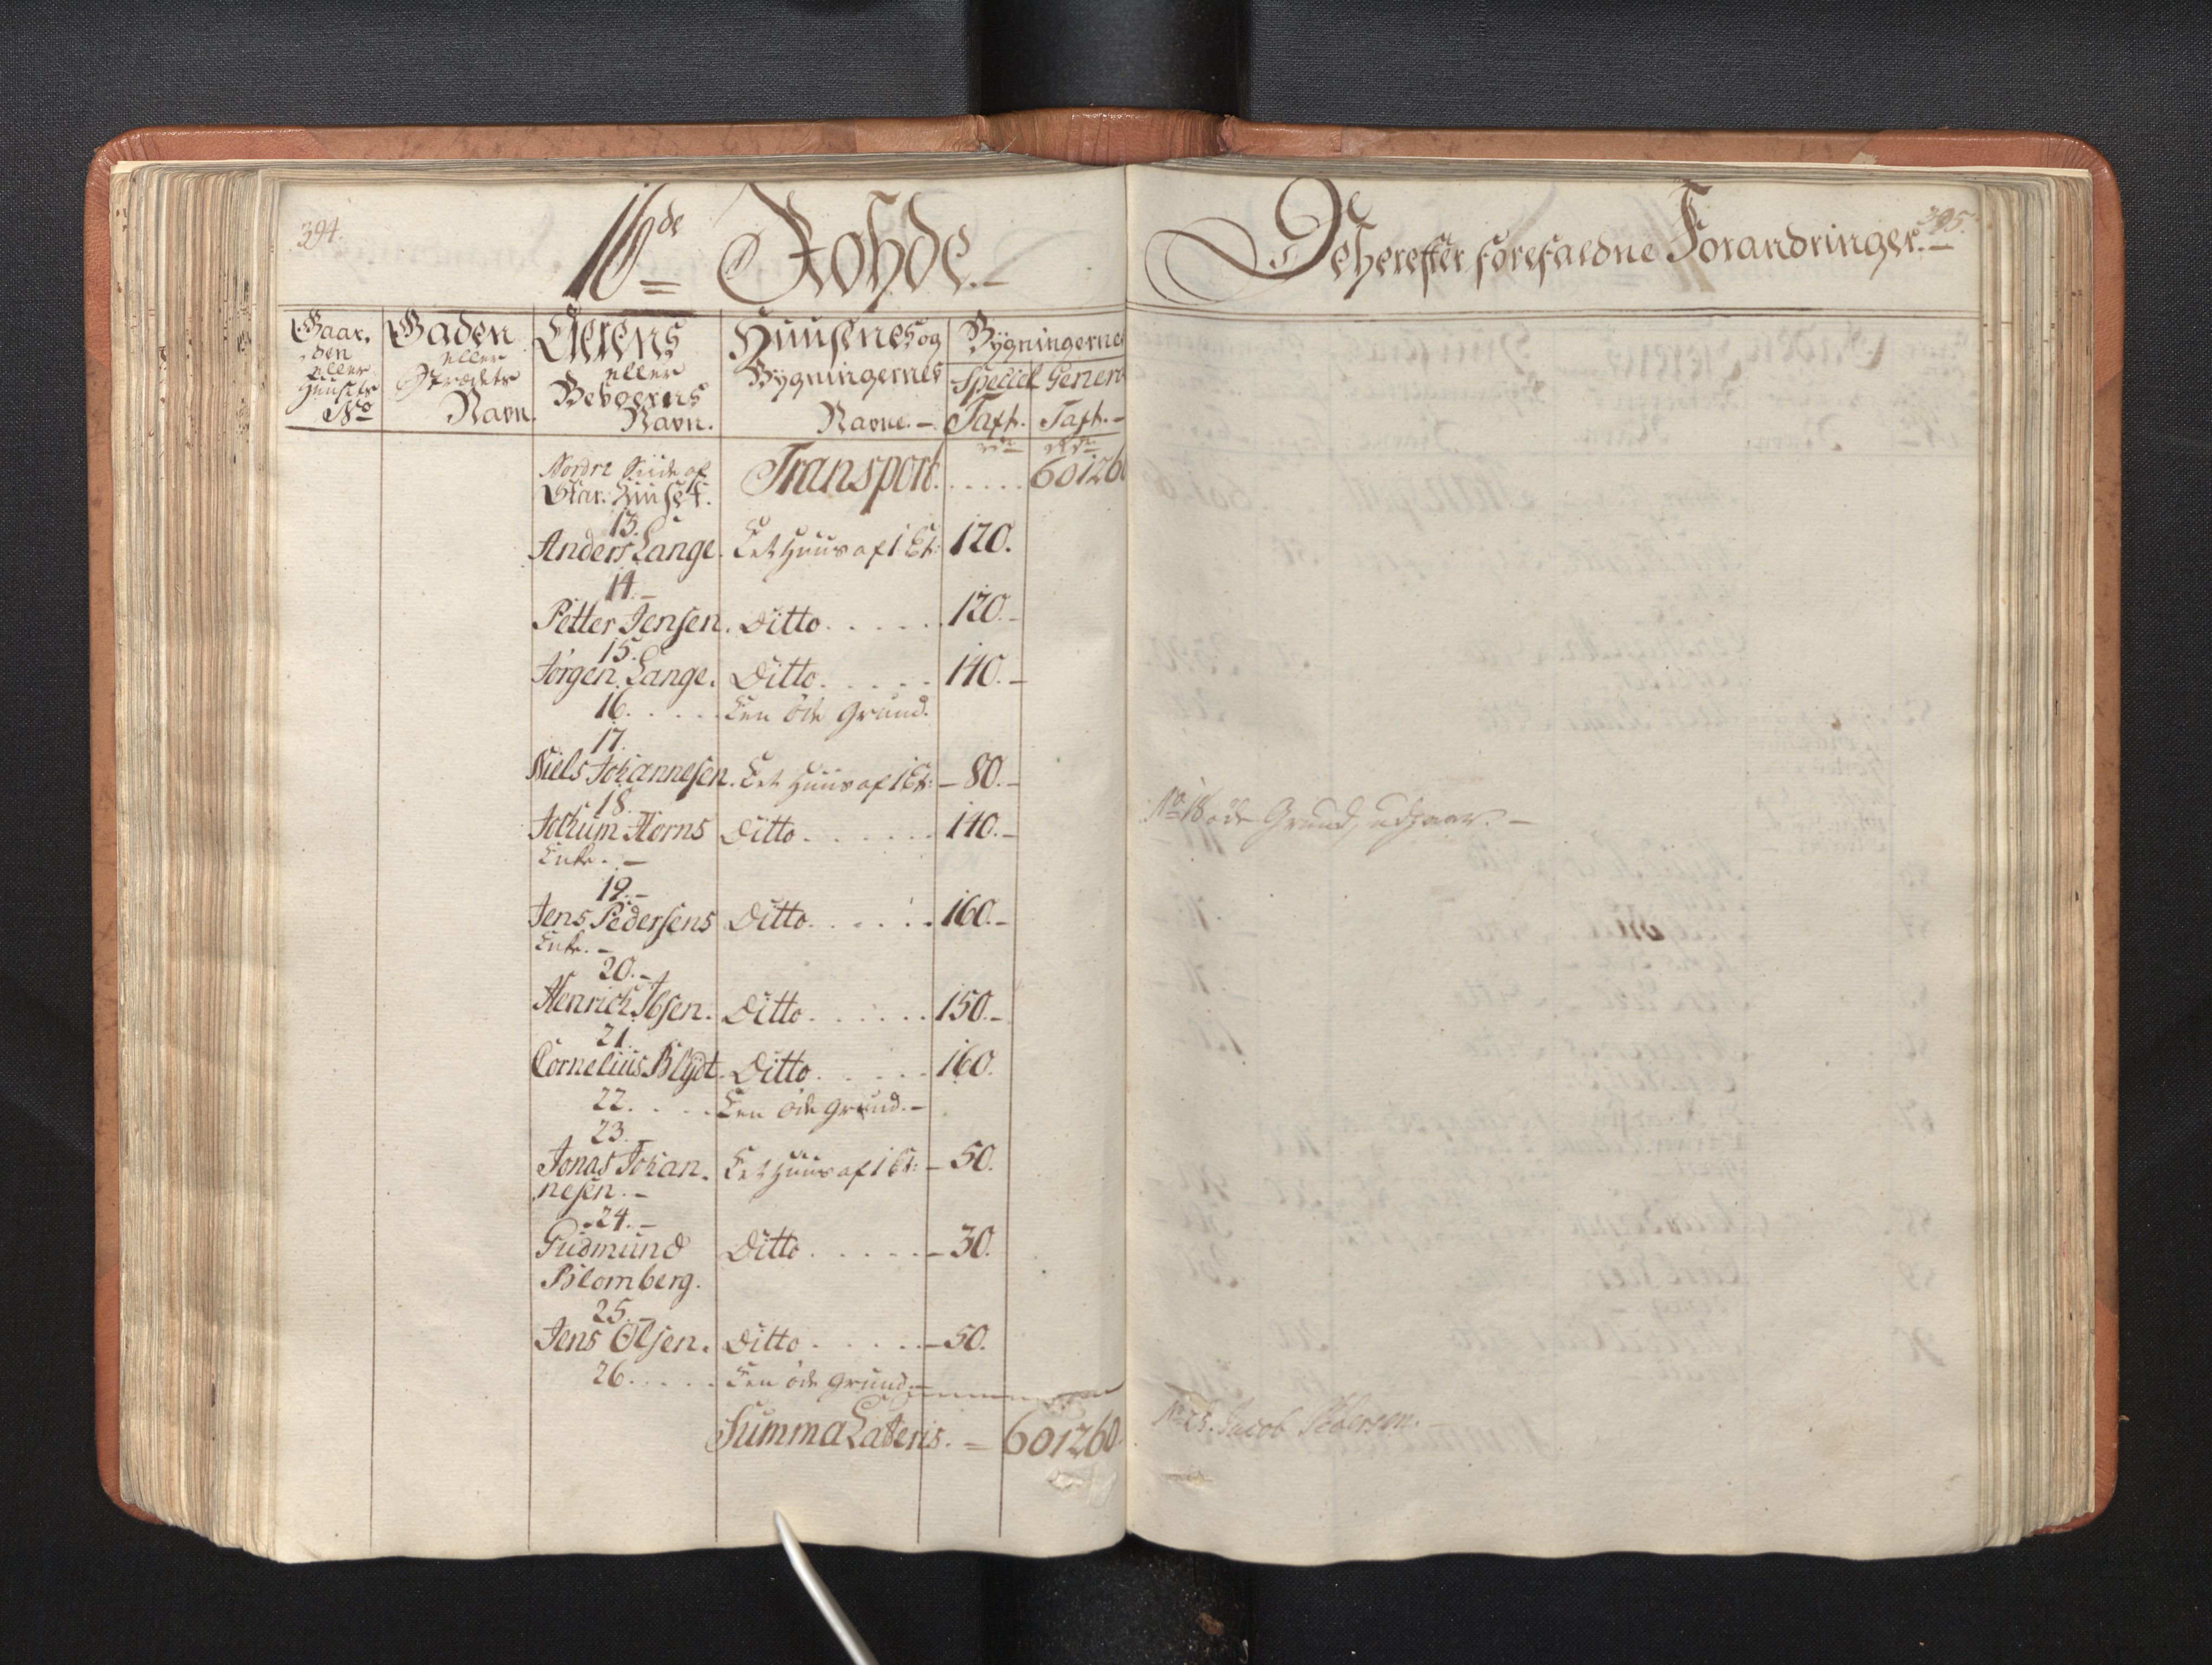 394.
16de Rohde.
Gaar-
den
eller
Huusets
No
Gaden
eller
Strædets
Navn.
Eierens
eller
Beboerens
Navn.
Huusenes og
Bygningernes
Navne.
Bygningernes
Speciel Taxt.
General Taxt.
Nordre Siide af
Star-Huuset.
Transport. . . . . . 601260
13.
Anders Lange. Eet Huus af 1 Et: 120.
14.
Petter Jensen. Ditto . . . . . 120.
15.
Jørgen Lange. Ditto . . . . . 140.
16. . . . . Een øde Grund.
17.
Niels Johannesen. Eet Huus af 1 Et: 80.
18.
Jochum Horns Ditto . . . . . 140.
Enke.
19.
Jens Pedersens Ditto . . . . . 160.
Enke.
20.
Henrich Ibsen. Ditto . . . . . 150.
21.
Cornelius Blÿdt. Ditto . . . . . 160.
22. . . . . Een øde Grund.
23.
Jonas Johan- Eet Huus af 1 Et: 50.
nesen.
24.
Gudmund Ditto . . . . . 30.
Blomberg.
25.
Jens Olsen. Ditto . . . . . 50.
26. . . . . Een øde Grund.
Summa Lateris. = 601260.
395.
De herefter forefaldne Forandringer.
No 18 øde Grund, udgaar.
No 25. Jacob Pedersen.